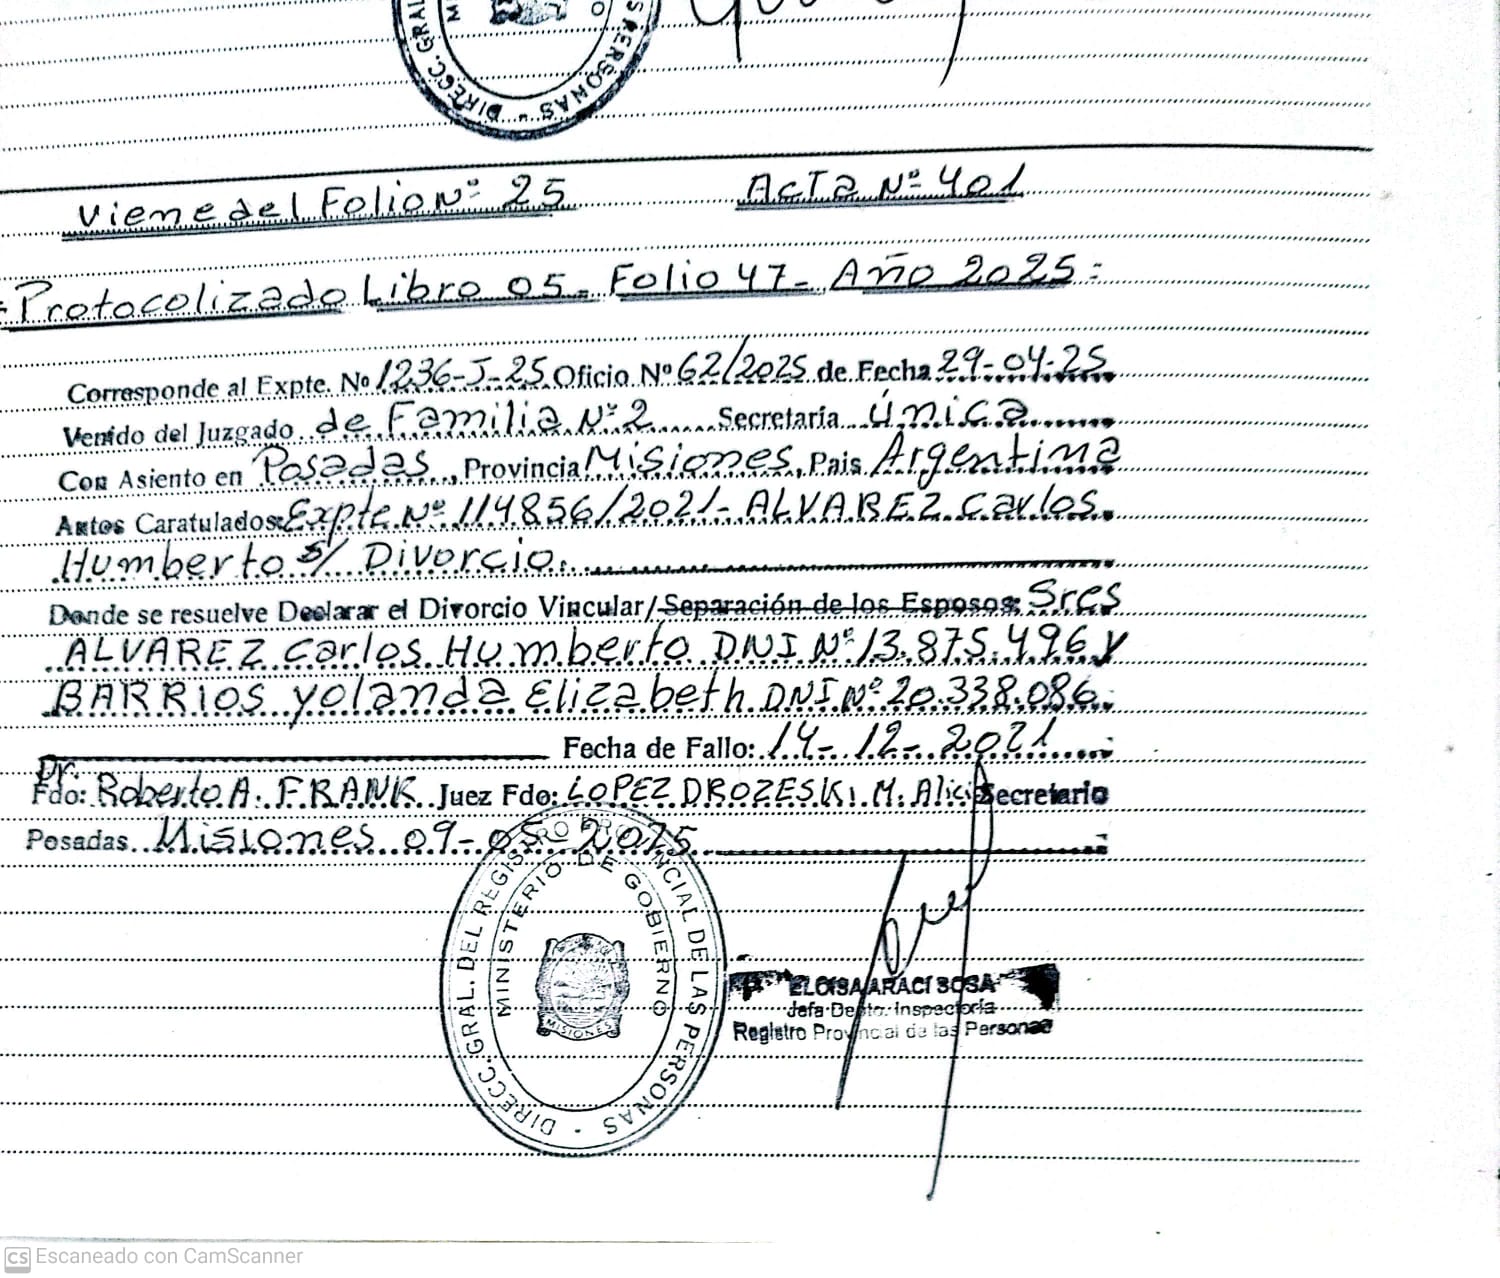 DIRECC. GRAL
S PERSONAS
Viene del Folio Nº 25 Acta Nº 401
Protocolizado Libro 05- Folio 47- Año 2025:
Corresponde al Expte. Nº 1236-J-25 Oficio Nº 62/2025 de Fecha 29-04-25
Venido del Juzgado de Familia Nº 2 Secretaría Única
Con Asiento en Posadas, Provincia Misiones, Pais Argentina
Autos Caratulados: Expte Nº 114856/2021- ALVAREZ Carlos
Humberto s/ Divorcio.
Donde se resuelve Declarar el Divorcio Vincular/Separación de los Esposos: Sres
ALVAREZ Carlos Humberto DNI Nº 13.875.496 y
BARRIOS Yolanda Elizabeth DNI Nº 20.338.086
Fecha de Fallo: 14-12-2021
Fdo: Dr. Roberto A. FRANK Juez Fdo: LOPEZ DROZESKI M. Alici Secretario
Posadas Misiones 09-05-2025
DIRECC. GRAL. DEL REGISTRO PROVINCIAL DE LAS PERSONAS
MINISTERIO DE GOBIERNO
MISIONES
ELOISA ARACI SOSA
Jefa Depto. Inspectoría
Registro Provincial de las Personas
CS Escaneado con CamScanner